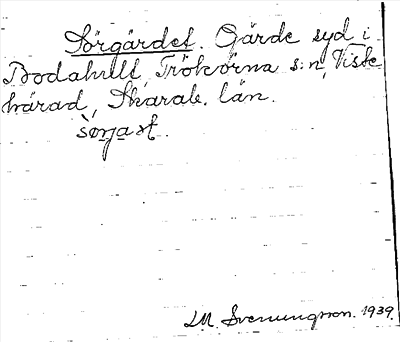 Sörgärdet. Gärde syd i
Bodahult, Trökörna s:n, Viste
härad, Skarab. län.
L.M. Svenungsson. 1939.